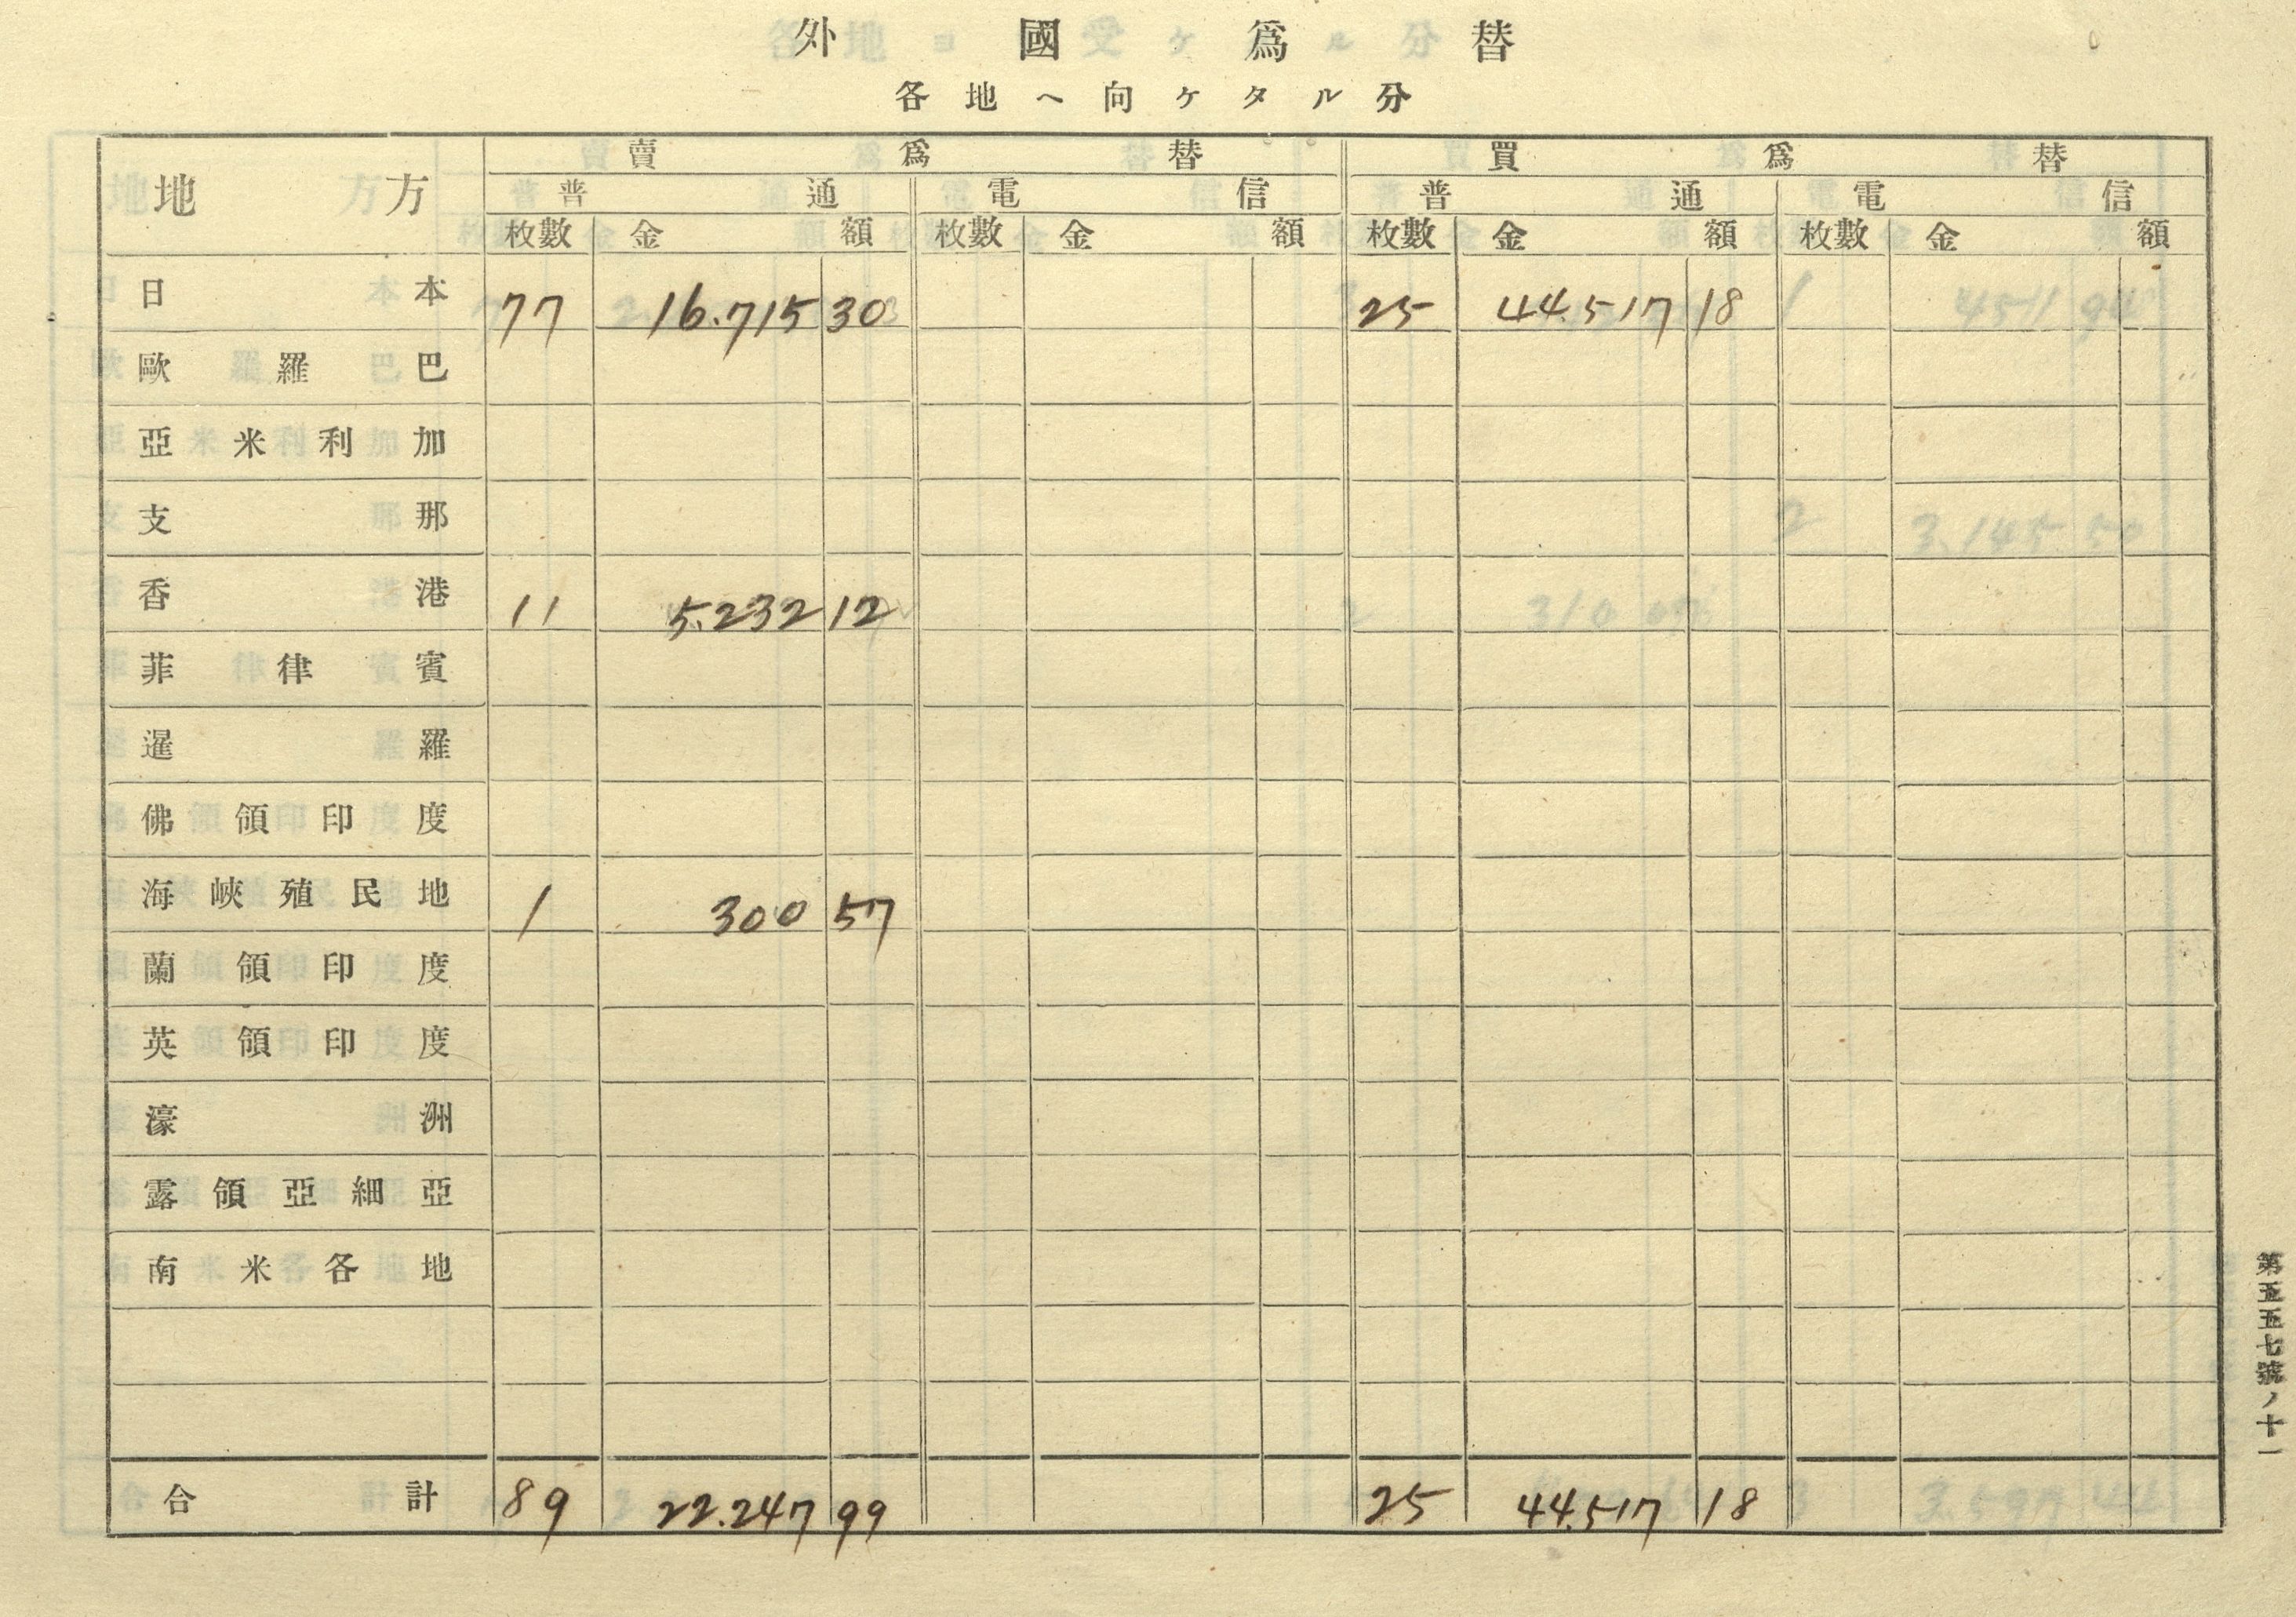 外國爲替
各地ヘ向ケタル分
地方 賣爲替 買爲替
普通 電信 普通 電信
枚數 金額 枚數 金額 枚數 金額 枚數 金額
日本 77 16.715 30 25 44.517 18
歐羅巴
亞米利加
支那
香港 11 5.232 12
菲律賓
暹羅
佛領印度
海峽殖民地 1 300 57
蘭領印度
英領印度
濠洲
露領亞細亞
南米各地
合計 89 22.247 99 25 44.517 18
第五五七號ノ十一